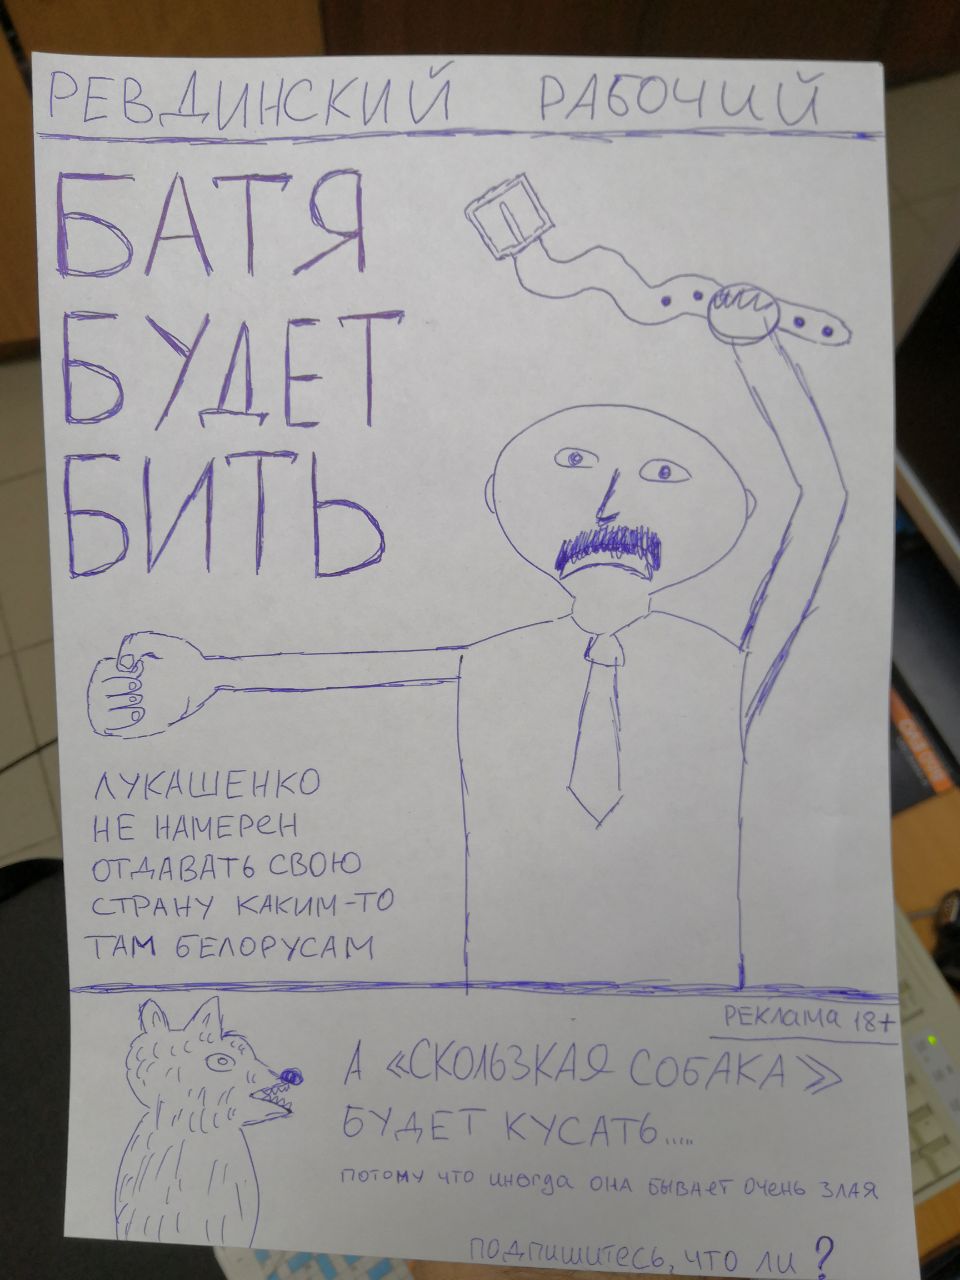 РЕВДИНСКИЙ РАБОЧИЙ
БАТЯ
БУДЕТ
БИТЬ
ЛУКАШЕНКО
НЕ НАМЕРЕН
ОТДАВАТЬ СВОЮ
СТРАНУ КАКИМ-ТО
ТАМ БЕЛОРУСАМ
РЕКЛАМА 18+
А «СКОЛЬЗКАЯ СОБАКА»
БУДЕТ КУСАТЬ.....
ПОТОМУ ЧТО ИНОГДА ОНА БЫВАЕТ ОЧЕНЬ ЗЛАЯ
ПОДПИШИТЕСЬ, ЧТО ЛИ?